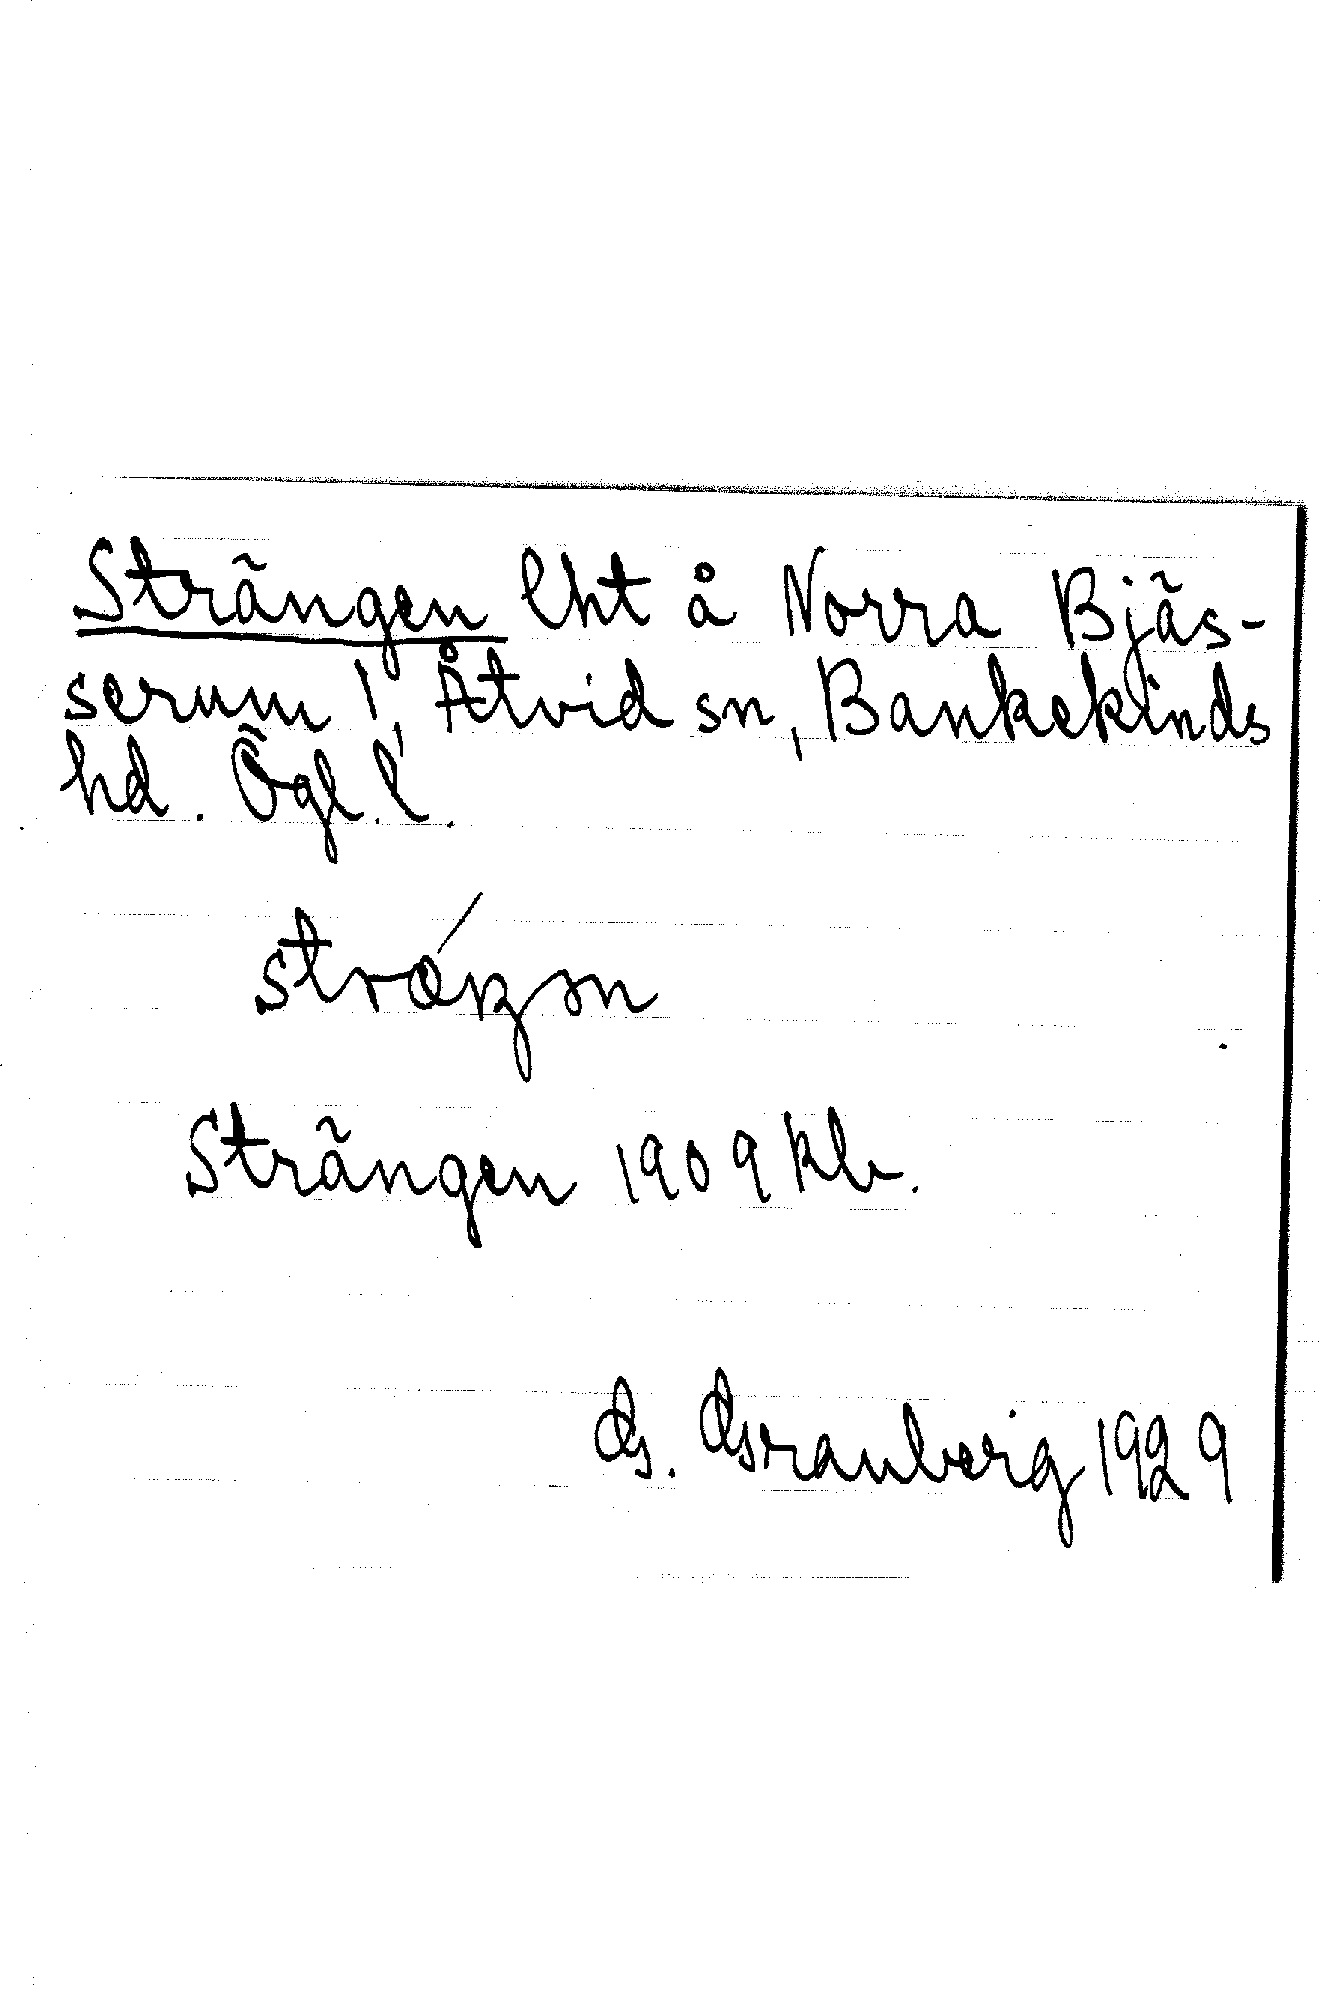 Strängen lht å Norra Bjäs-
serum 1, Åtvid sn, Bankekinds
hd. Ögl. l.
Strängen 1909 kb.
G. Granberg 1929